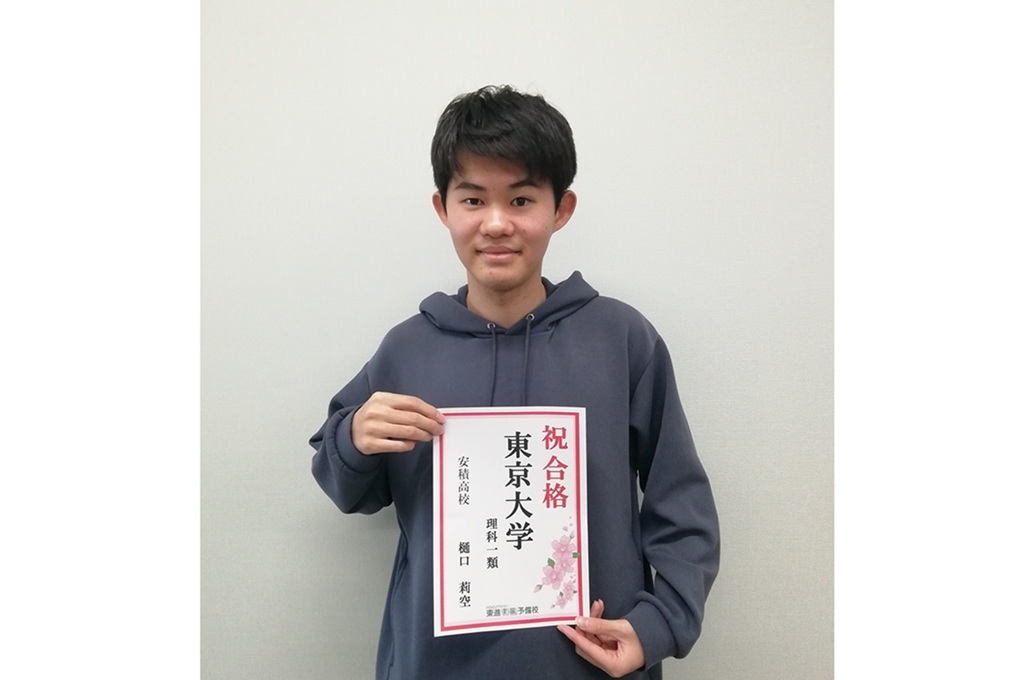 祝 合格
東京大学
理科一類
安積高校 樋口 莉空
東進衛星予備校